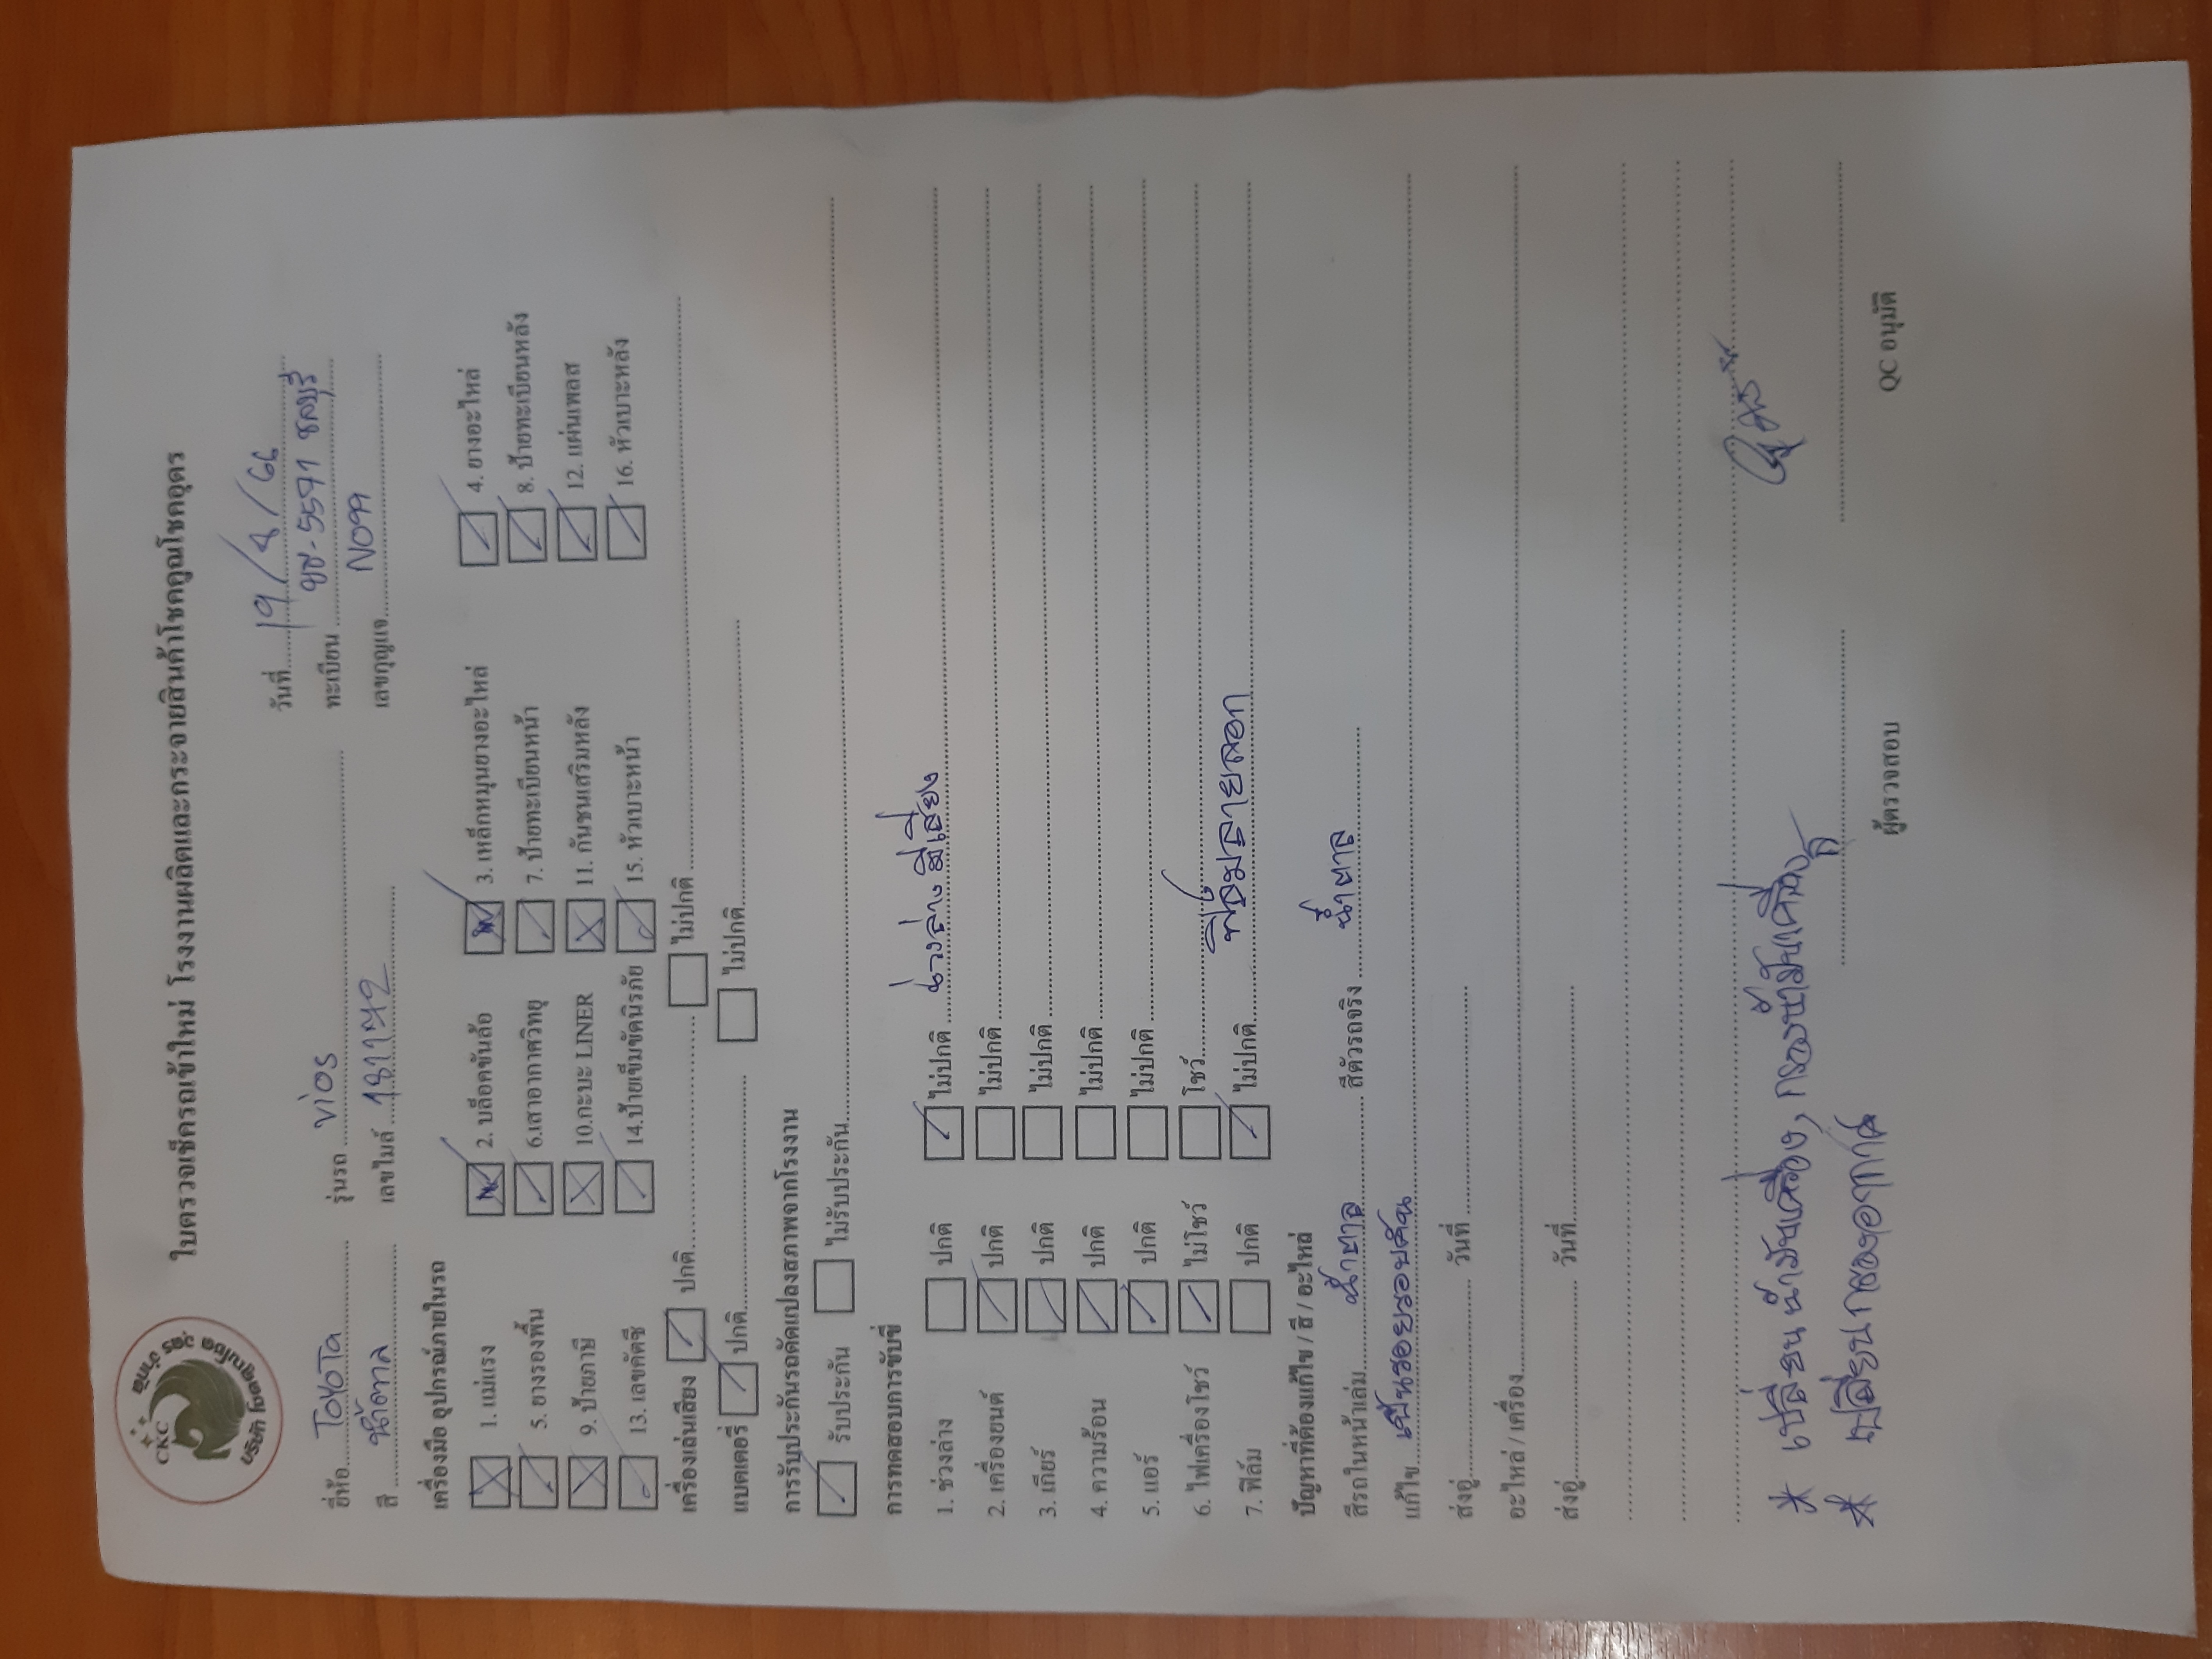 CKC
บริษัท โชคคูณโชค อุดร จำกัด
ใบตรวจเช็ครถเข้าใหม่ โรงงานผลิตและกระจายสินค้าโชคคูณโชคอุดร
วันที่ 19/4/66
ยี่ห้อ TOYOTA รุ่นรถ Vios ทะเบียน 5571 ชลบุรี
สี น้ำตาล เลขไมล์ เลขกุญแจ
เครื่องมือ อุปกรณ์ภายในรถ
1. แม่แรง 2. บล็อคขันล้อ 3. เหล็กหมุนยางอะไหล่ 4. ยางอะไหล่
5. ยางรองพื้น 6.เสาอากาศวิทยุ 7. ป้ายทะเบียนหน้า 8. ป้ายทะเบียนหลัง
9. ป้ายภาษี 10.กะบะ LINER 11. กันชนเสริมหลัง 12. แผ่นเพลส
13. เลขคัตซี 14.ป้ายเข็มขัดนิรภัย 15. หัวเบาะหน้า 16. หัวเบาะหลัง
เครื่องเล่นเสียง ปกติ ไม่ปกติ
แบตเตอรี่ ปกติ ไม่ปกติ
การรับประกันรถดัดแปลงสภาพจากโรงงาน
รับประกัน ไม่รับประกัน
การทดสอบการขับขี่
1. ช่วงล่าง ปกติ ไม่ปกติ ช่วงล่างมีเสียง
2. เครื่องยนต์ ปกติ ไม่ปกติ
3. เกียร์ ปกติ ไม่ปกติ
4. ความร้อน ปกติ ไม่ปกติ
5. แอร์ ปกติ ไม่ปกติ
6. ไฟเครื่องโชว์ ไม่โชว์ โชว์
7. ฟิล์ม ปกติ ไม่ปกติ ฟิล์มลายลอก
ปัญหาที่ต้องแก้ไข / สี / อะไหล่
สีรถในหน้าเล่ม น้ำตาล สีตัวรถจริง น้ำตาล
แก้ไข เป็นรอยรอบคัน
ส่งอู่ วันที่
อะไหล่ / เครื่อง
ส่งอู่ วันที่
* เปลี่ยนน้ำมันเครื่อง, กรองน้ำมันเครื่อง
* เปลี่ยนกรองอากาศ
ผู้ตรวจสอบ QC อนุมัติ